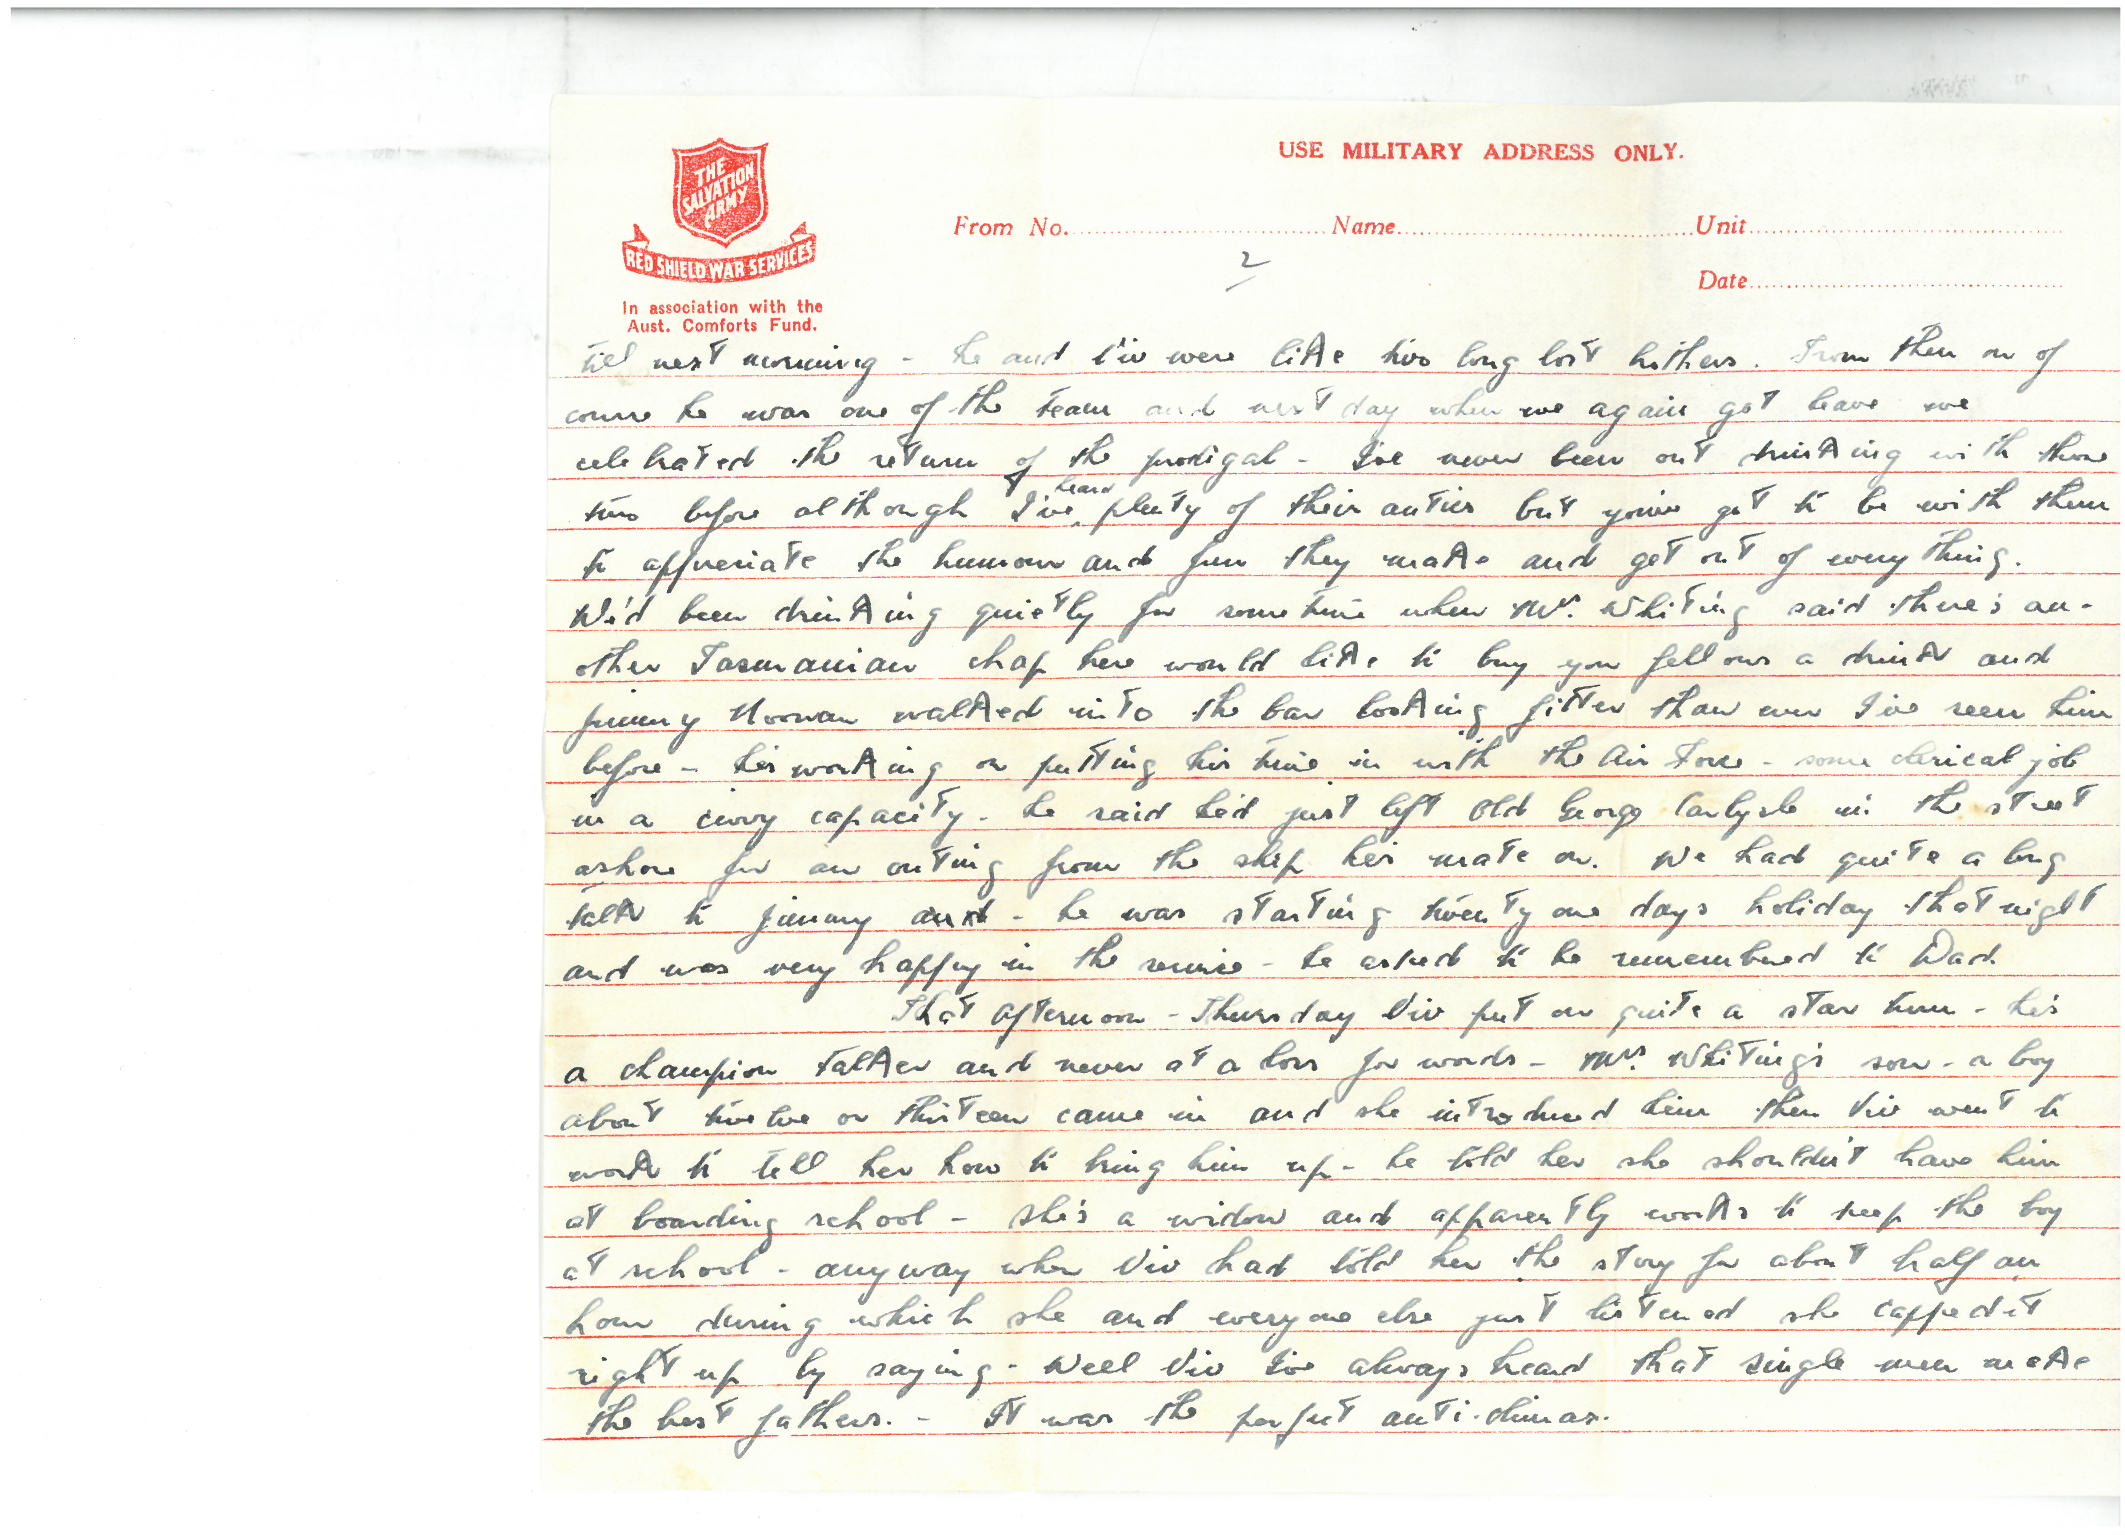 THE
SALVATION
ARMY
RED SHIELD WAR SERVICES
In association with the
Aust. Comforts Fund.
USE MILITARY ADDRESS ONLY.
From No. Name Unit
2
Date
till next morning - he and Viv were like two long lost brothers. From then on of
course he was one of the team and next day when we again got leave we
celebrated the return of the prodigal - I've never been out drinking with those
two before although I've heard plenty of their antics but you've got to be with them
to appreciate the humour and fun they make and get out of everything.
We'd been drinking quietly for some time when Mrs. Whiting said there's an-
other Tasmanian chap here would like to buy you fellows a drink and
Jimmy Noonan walked into the bar looking fitter than ever I've seen him
before - he's working or putting his time in with the Air Force - some clerical job
in a civvy capacity - he said he'd just left Old George Carlysle in the street
ashore for an outing from the ship he's mate on. We had quite a long
talk to Jimmy and - he was starting twenty one days holiday that night
and was very happy in the service - he asked to be remembered to Dad.
That afternoon - Thursday Viv put on quite a star turn - he's
a champion talker and never at a loss for words - Mrs. Whiting's son - a boy
about twelve or thirteen came in and she introduced him then Viv went to
work to tell her how to bring him up - he told her she shouldn't have him
at boarding school - she's a widow and apparently works to keep the boy
at school - anyway when Viv had told her the story for about half an
hour during which she and everyone else just listened she capped it
right up by saying - Well Viv I've always heard that single men make
the best fathers. - It was the perfect anti-climax.